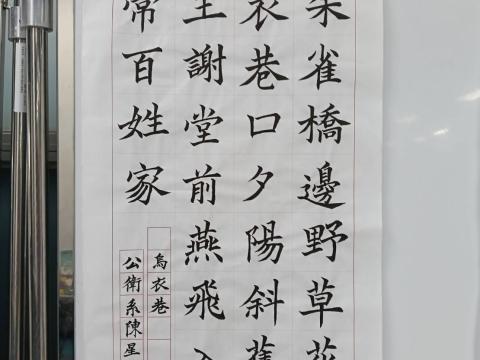 朱雀橋邊野草花
衣巷口夕陽斜舊
王謝堂前燕飛入
常百姓家
烏衣巷
公衛系陳星